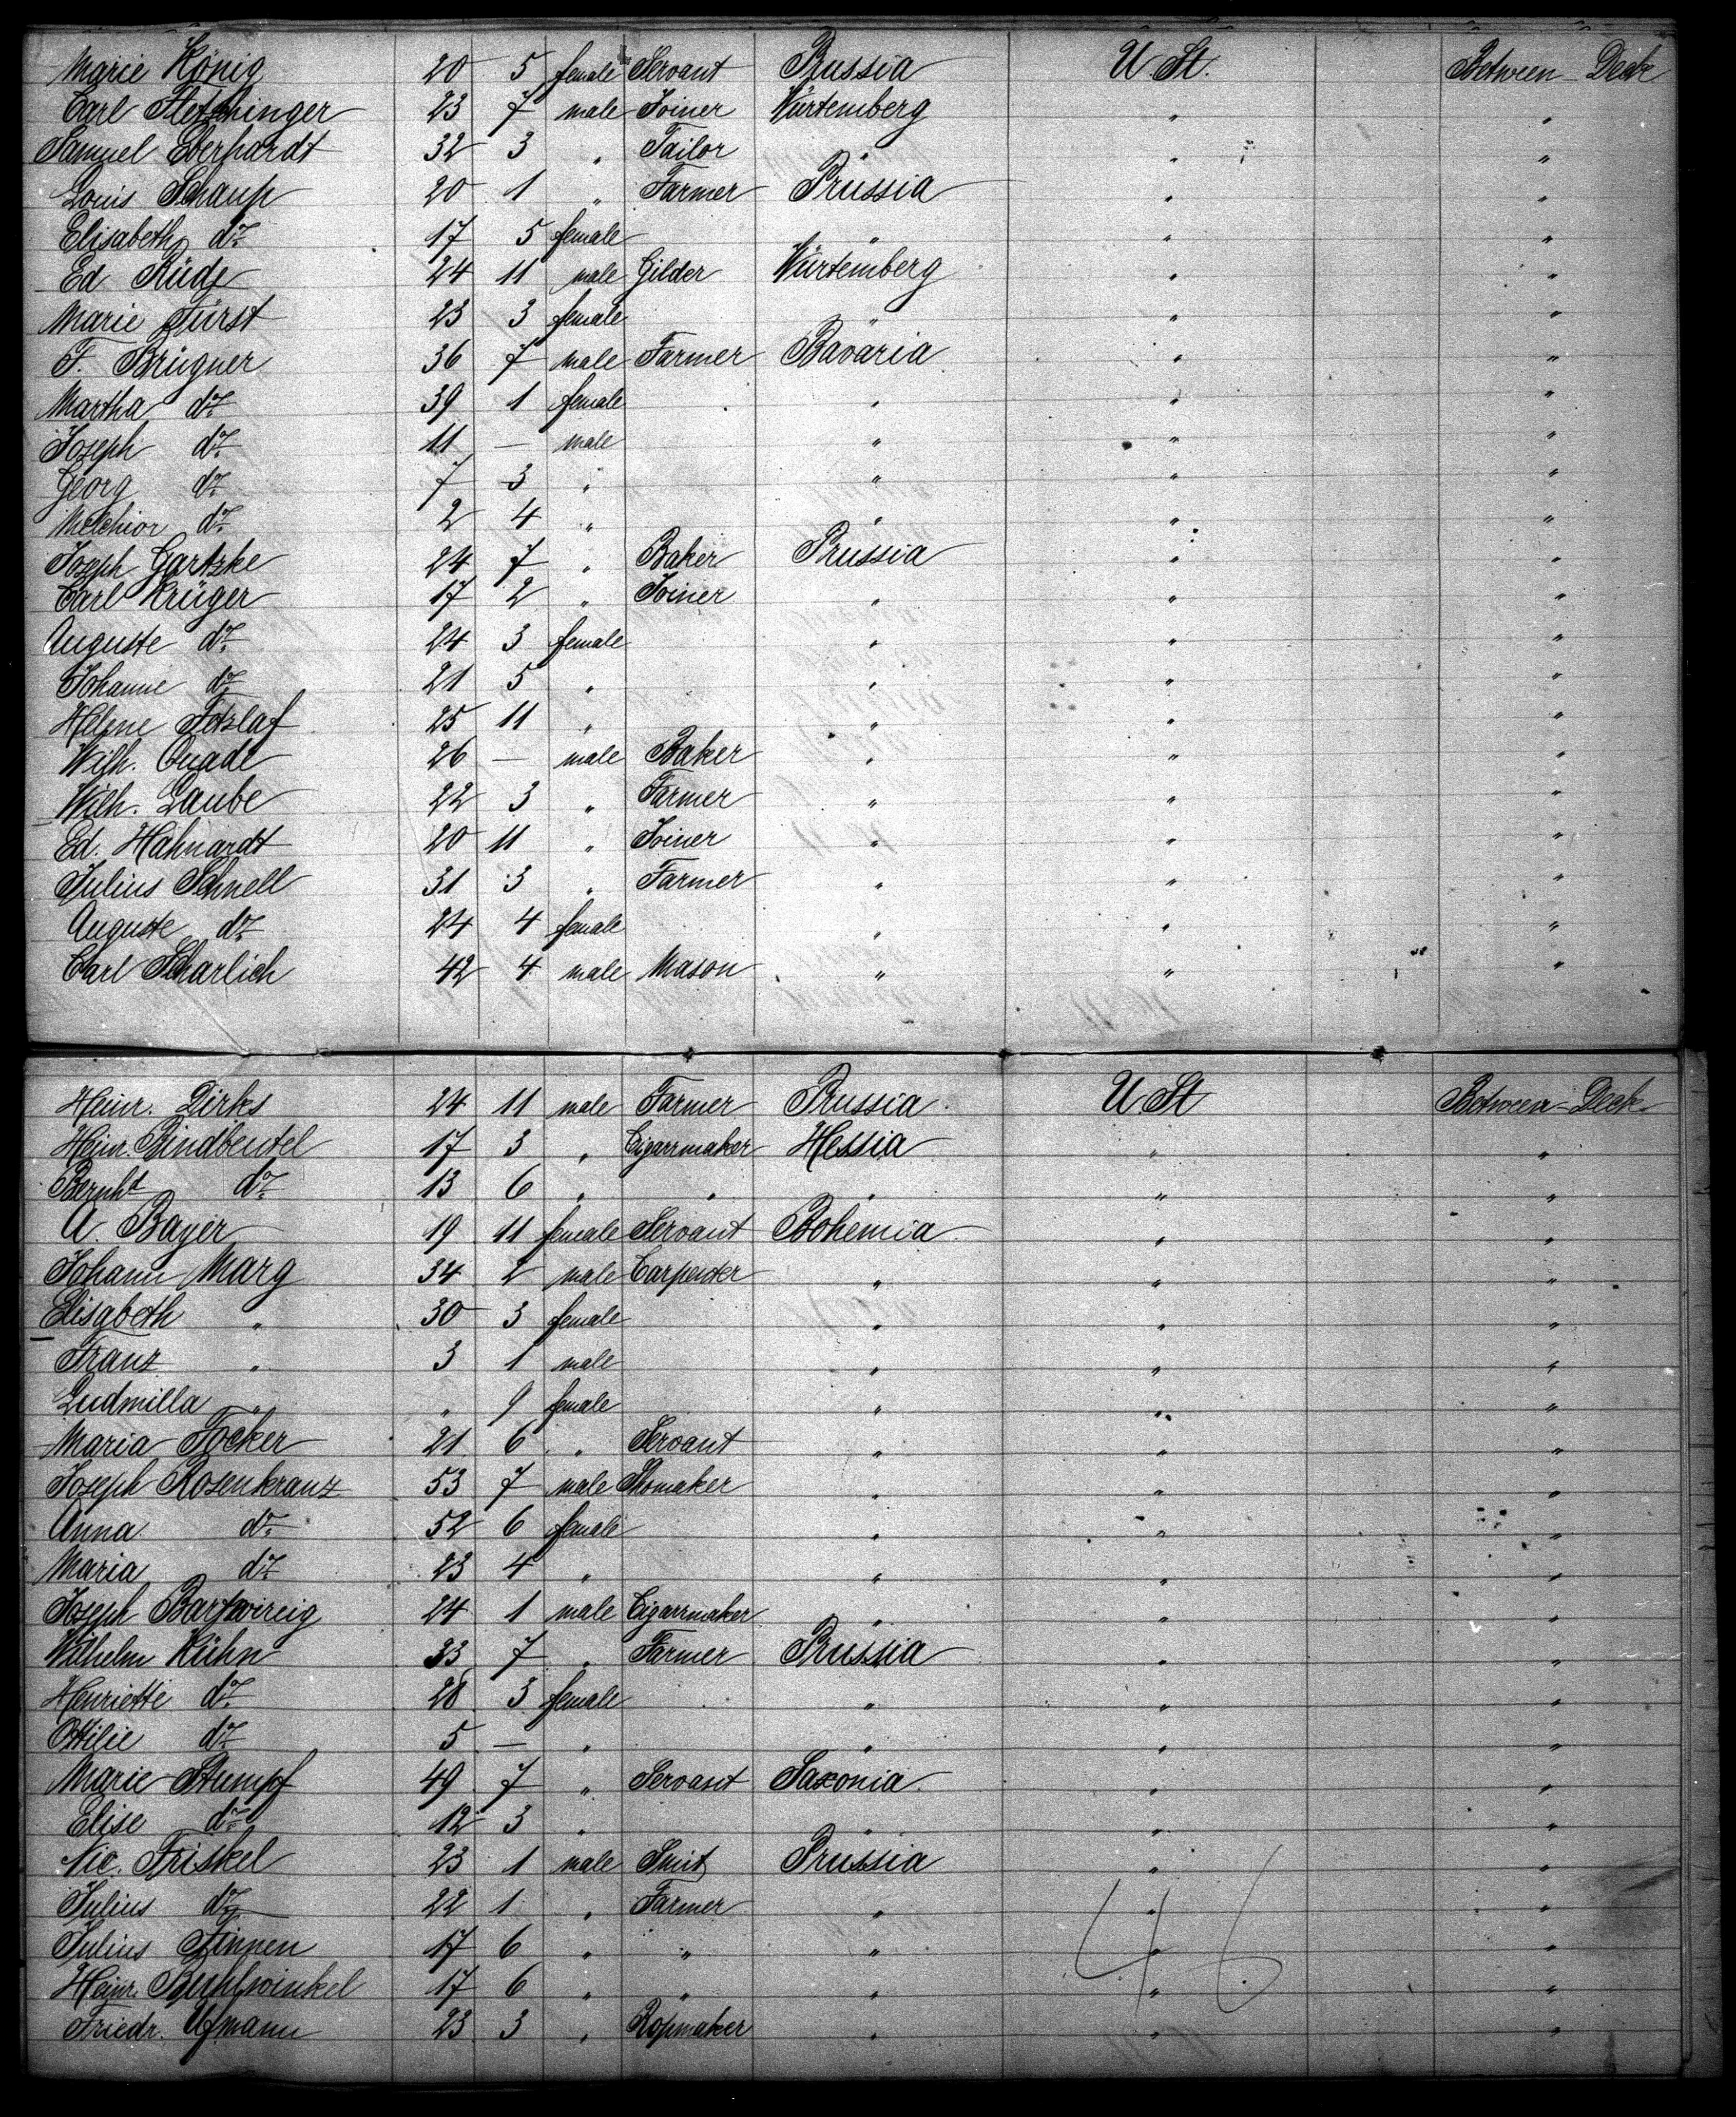 Marie König 20 5 female Servant Prussia U. St. Between Deck
Carl Fletschinger 23 7 male Joiner Würtemberg " "
Samuel Eberhardt 32 3 " Tailor " " "
Louis Schaup 20 1 " Farmer Prussia " "
Elisabeth do 17 5 female " " "
Ed Rüde 24 11 male Gilder Würtemberg " "
Marie Fürst 23 3 female " " "
F. Brügner 36 7 male Farmer Bavaria " "
Martha do 39 1 female " " "
Joseph do 11 — male " " "
Georg do 7 3 " " " "
Melchior do 2 4 " " " "
Joseph Gartzke 24 7 " Baker Prussia " "
Carl Krüger 17 2 " Joiner " " "
Auguste do 24 3 female " " "
Johanne do 21 5 " " " "
Helene Totzlaf 25 11 " " " "
Wilh. Quade 26 — male Baker " " "
Wilh. Laube 22 3 " Farmer " " "
Ed. Hahnardt 20 11 " Joiner " " "
Julius Schnell 31 3 " Farmer " " "
Auguste do 24 4 female " " "
Carl Scharlich 42 4 male Mason " " "
Heinr. Dirks 24 11 male Farmer Prussia U St Between Deck
Heinr. Bindbeutel 17 3 " Cigarrmaker Hessia " "
Bernhd do 13 6 " " " " "
A. Bayer 19 11 female Servant Bohemia " "
Johann Marg 34 2 male Carpenter " " "
Elisabeth " 30 3 female " " "
Franz " 3 1 male " " "
Ludmilla " " 9 female " " "
Maria Tocker 21 6 " Servant " " "
Joseph Rosenkranz 53 7 male Shomaker " " "
Anna do 52 6 female " " "
Maria do 23 4 " " " "
Joseph 24 1 male Cigarrmaker " " "
Wilhelm Kühn 33 7 " Farmer Prussia " "
Henriette do 28 3 female " " "
Ottilie do 5 — " " " "
Marie Stumpf 49 7 " Servant Saxonia " "
Elise do 12 3 " " " "
Nic. Friskel 23 1 male Smit Prussia " "
Julius do 22 1 " Farmer " " "
Julius Finnen 17 6 " " " " "
Heinr. Buhlwinkel 17 6 " " " " "
Friedr. Ufmann 23 3 " Ropmaker " " "
46